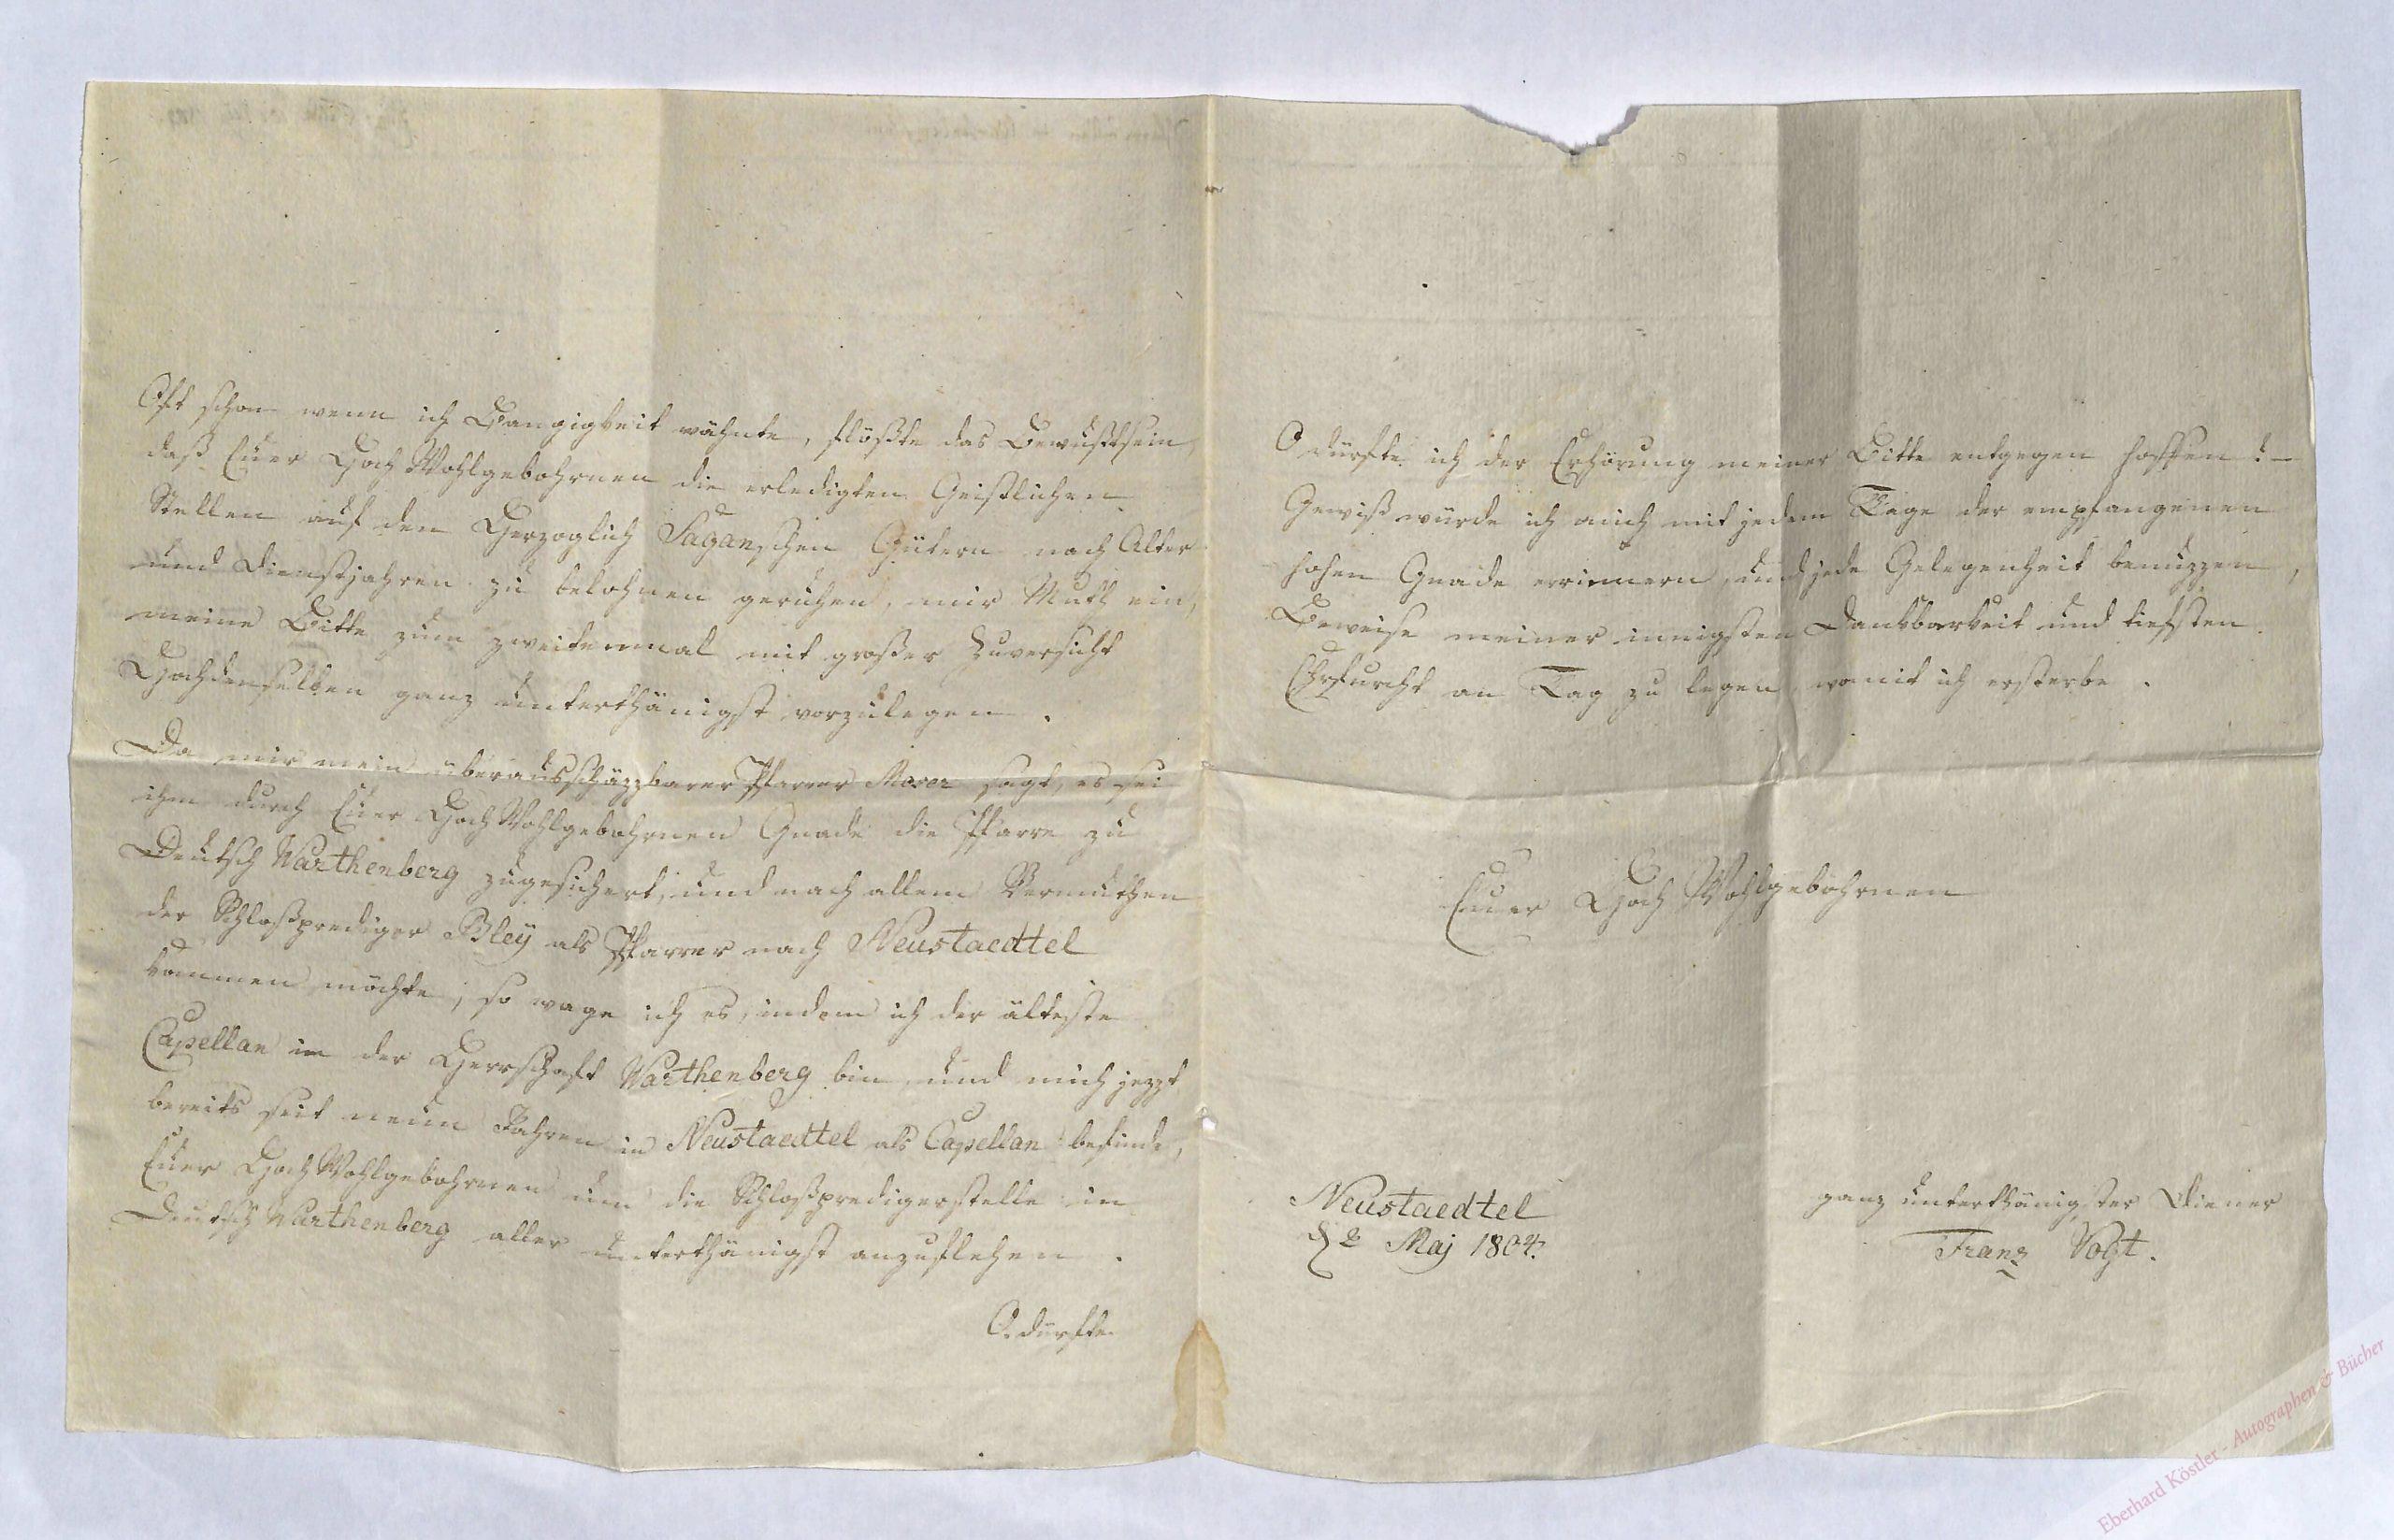 Oft schon wenn ich Bangigkeit wähnte, flößte das Bewußtsein,
daß Euer HochWohlgebohrnen die erledigten Geistlichen
Stellen auf den Herzoglich Saganschen Gütern nach Alter
und Dienstjahren zu belohnen geruhen, mir Muth ein,
meine Bitte zum zweitenmal mit großer Zuversicht
Hochdenselben ganz unterthänigst vorzulegen.
Da mir mein überausschäzzbarer Pfarrer sagt, es sei
ihm durch Euer HochWohlgebohrnen Gnade die Pfarre zu
Deutsch Warthenberg zugesichert, und nach allem Vermuthen
der Schloßprediger Bleÿ als Pfarrer nach Neustaedtel
kommen möchte, so wage ich es, indem ich der älteste
Capellan in der Herrschaft Warthenberg bin, und mich jezzt
bereits seit neun Jahren in Neustaedtel als Capellan befinde,
Euer HochWohlgebohrnen um die Schloßpredigerstelle in
Deutsch Warthenberg aller unterthänigst anzuflehen.
O dürfte
O dürfte ich der Erhörung meiner Bitte entgegen hoffen! –
Gewiß würde ich mich mit jedem Tage der empfangenen
hohen Gnade errinnern, und jede Gelegenheit benuzzen,
Beweise meiner innigsten Dankbarkeit und tiefsten
Ehrfurcht an Tag zu legen, womit ich ersterbe.
Euer Hoch Wohlgebohrnen
Neustaedtel
Maj 1804.
ganz unterthänigster Diener
Franz Vogt.
Eberhard Köstler - Autographen & Bücher